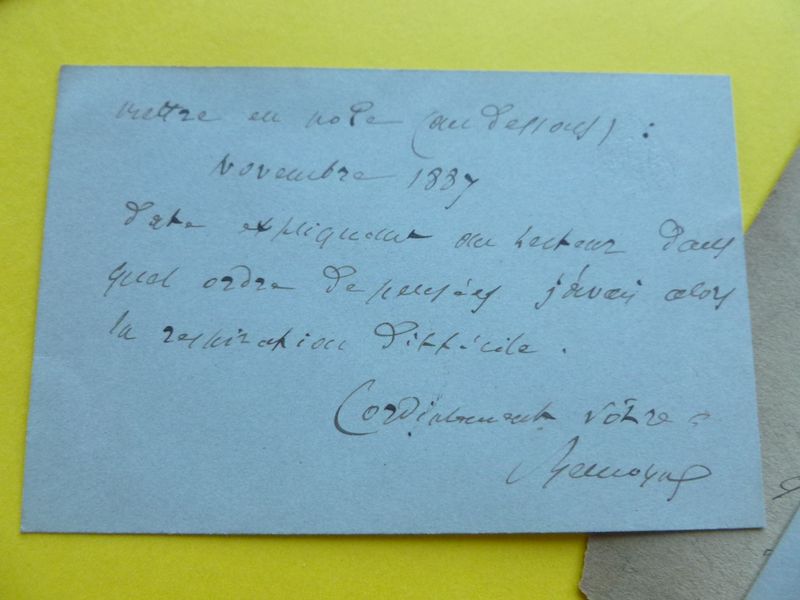 mettre en note (au dessous) :
Novembre 1887
date expliquant au lecteur dans
quel ordre de pensées j'avais alors
la respiration difficile.
Cordialement vôtre